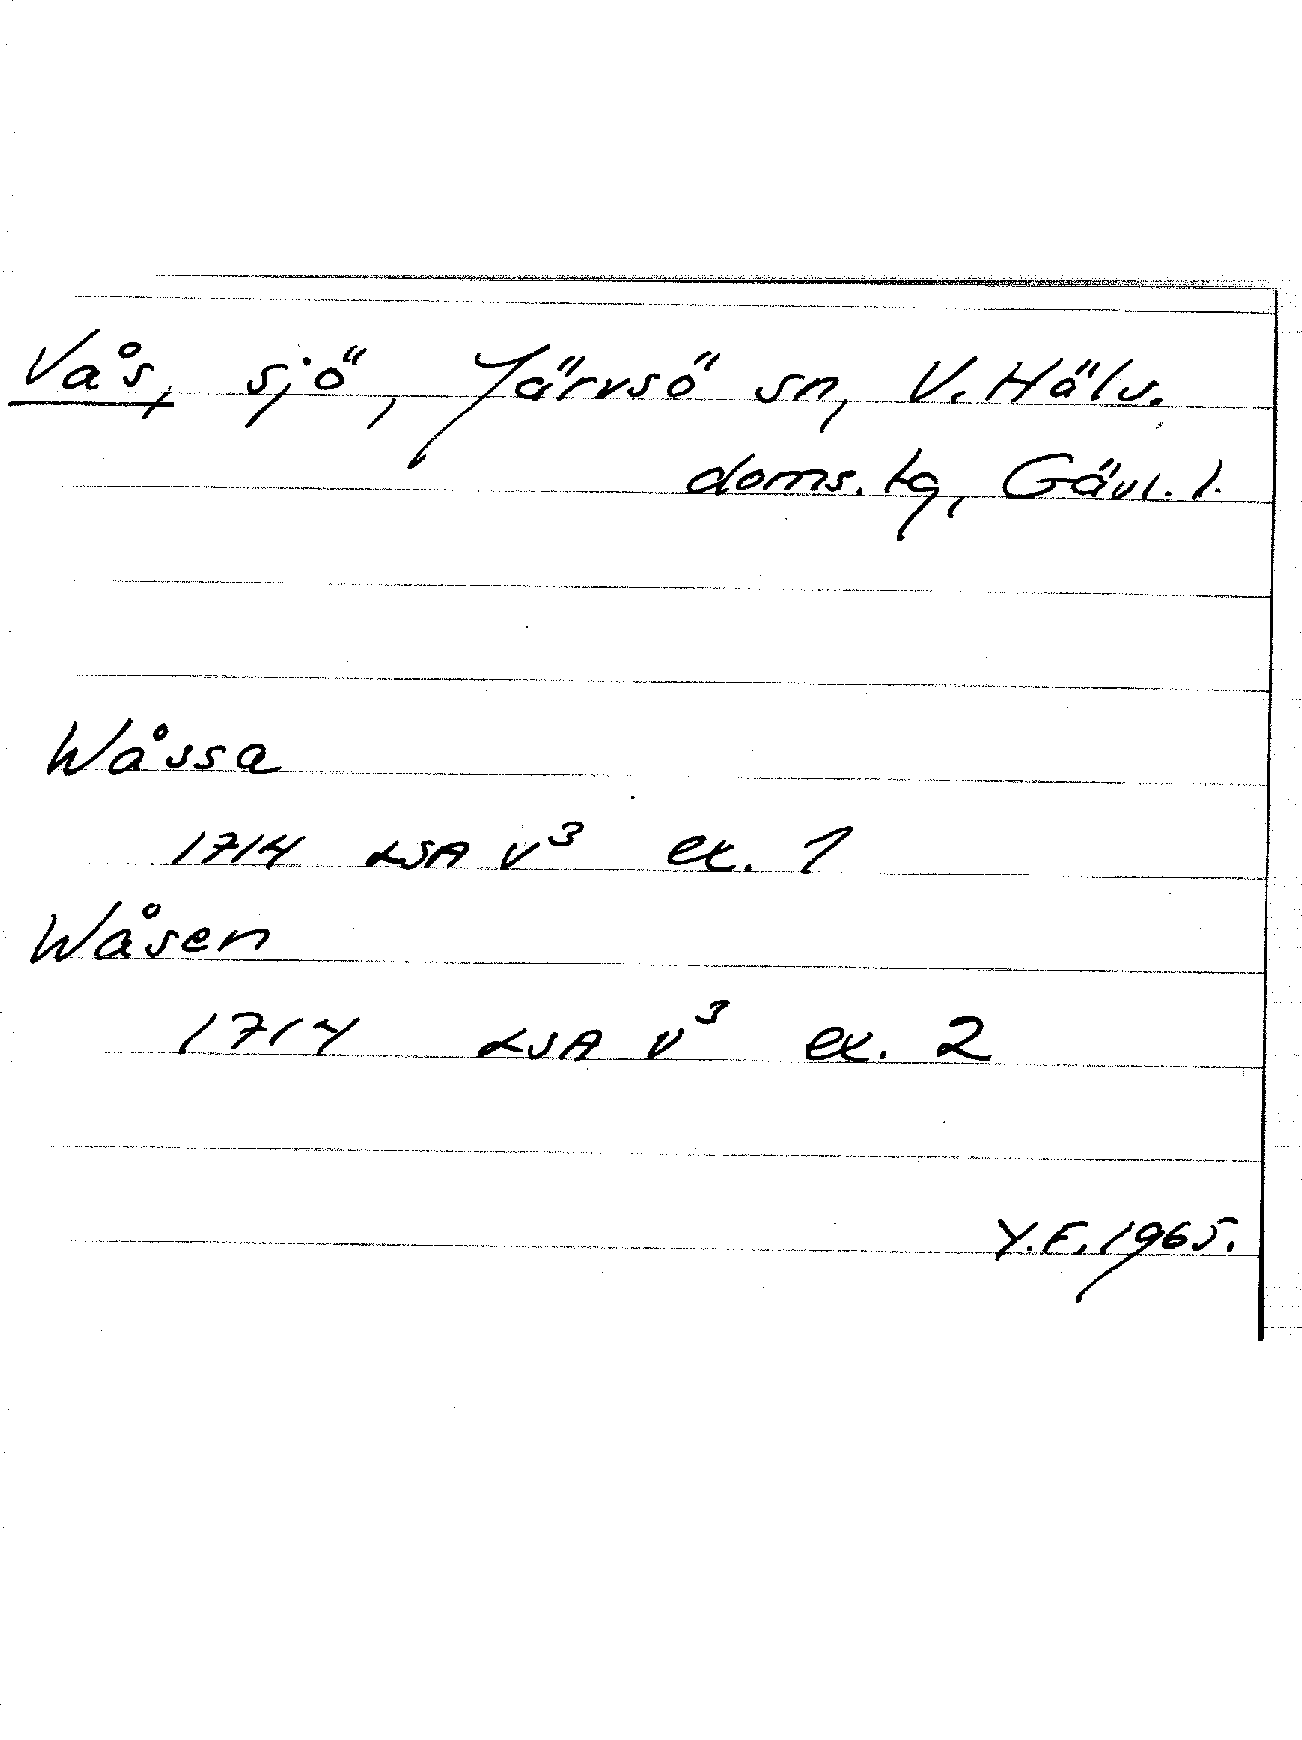 Vås, sjö, Järvsö sn, V. Häls.
doms. tg, Gävl. l.
Wåssa
1714 LSA V³ ex. 1
Wåsen
1714 LSA V³ ex. 2
Y.F. 1965.